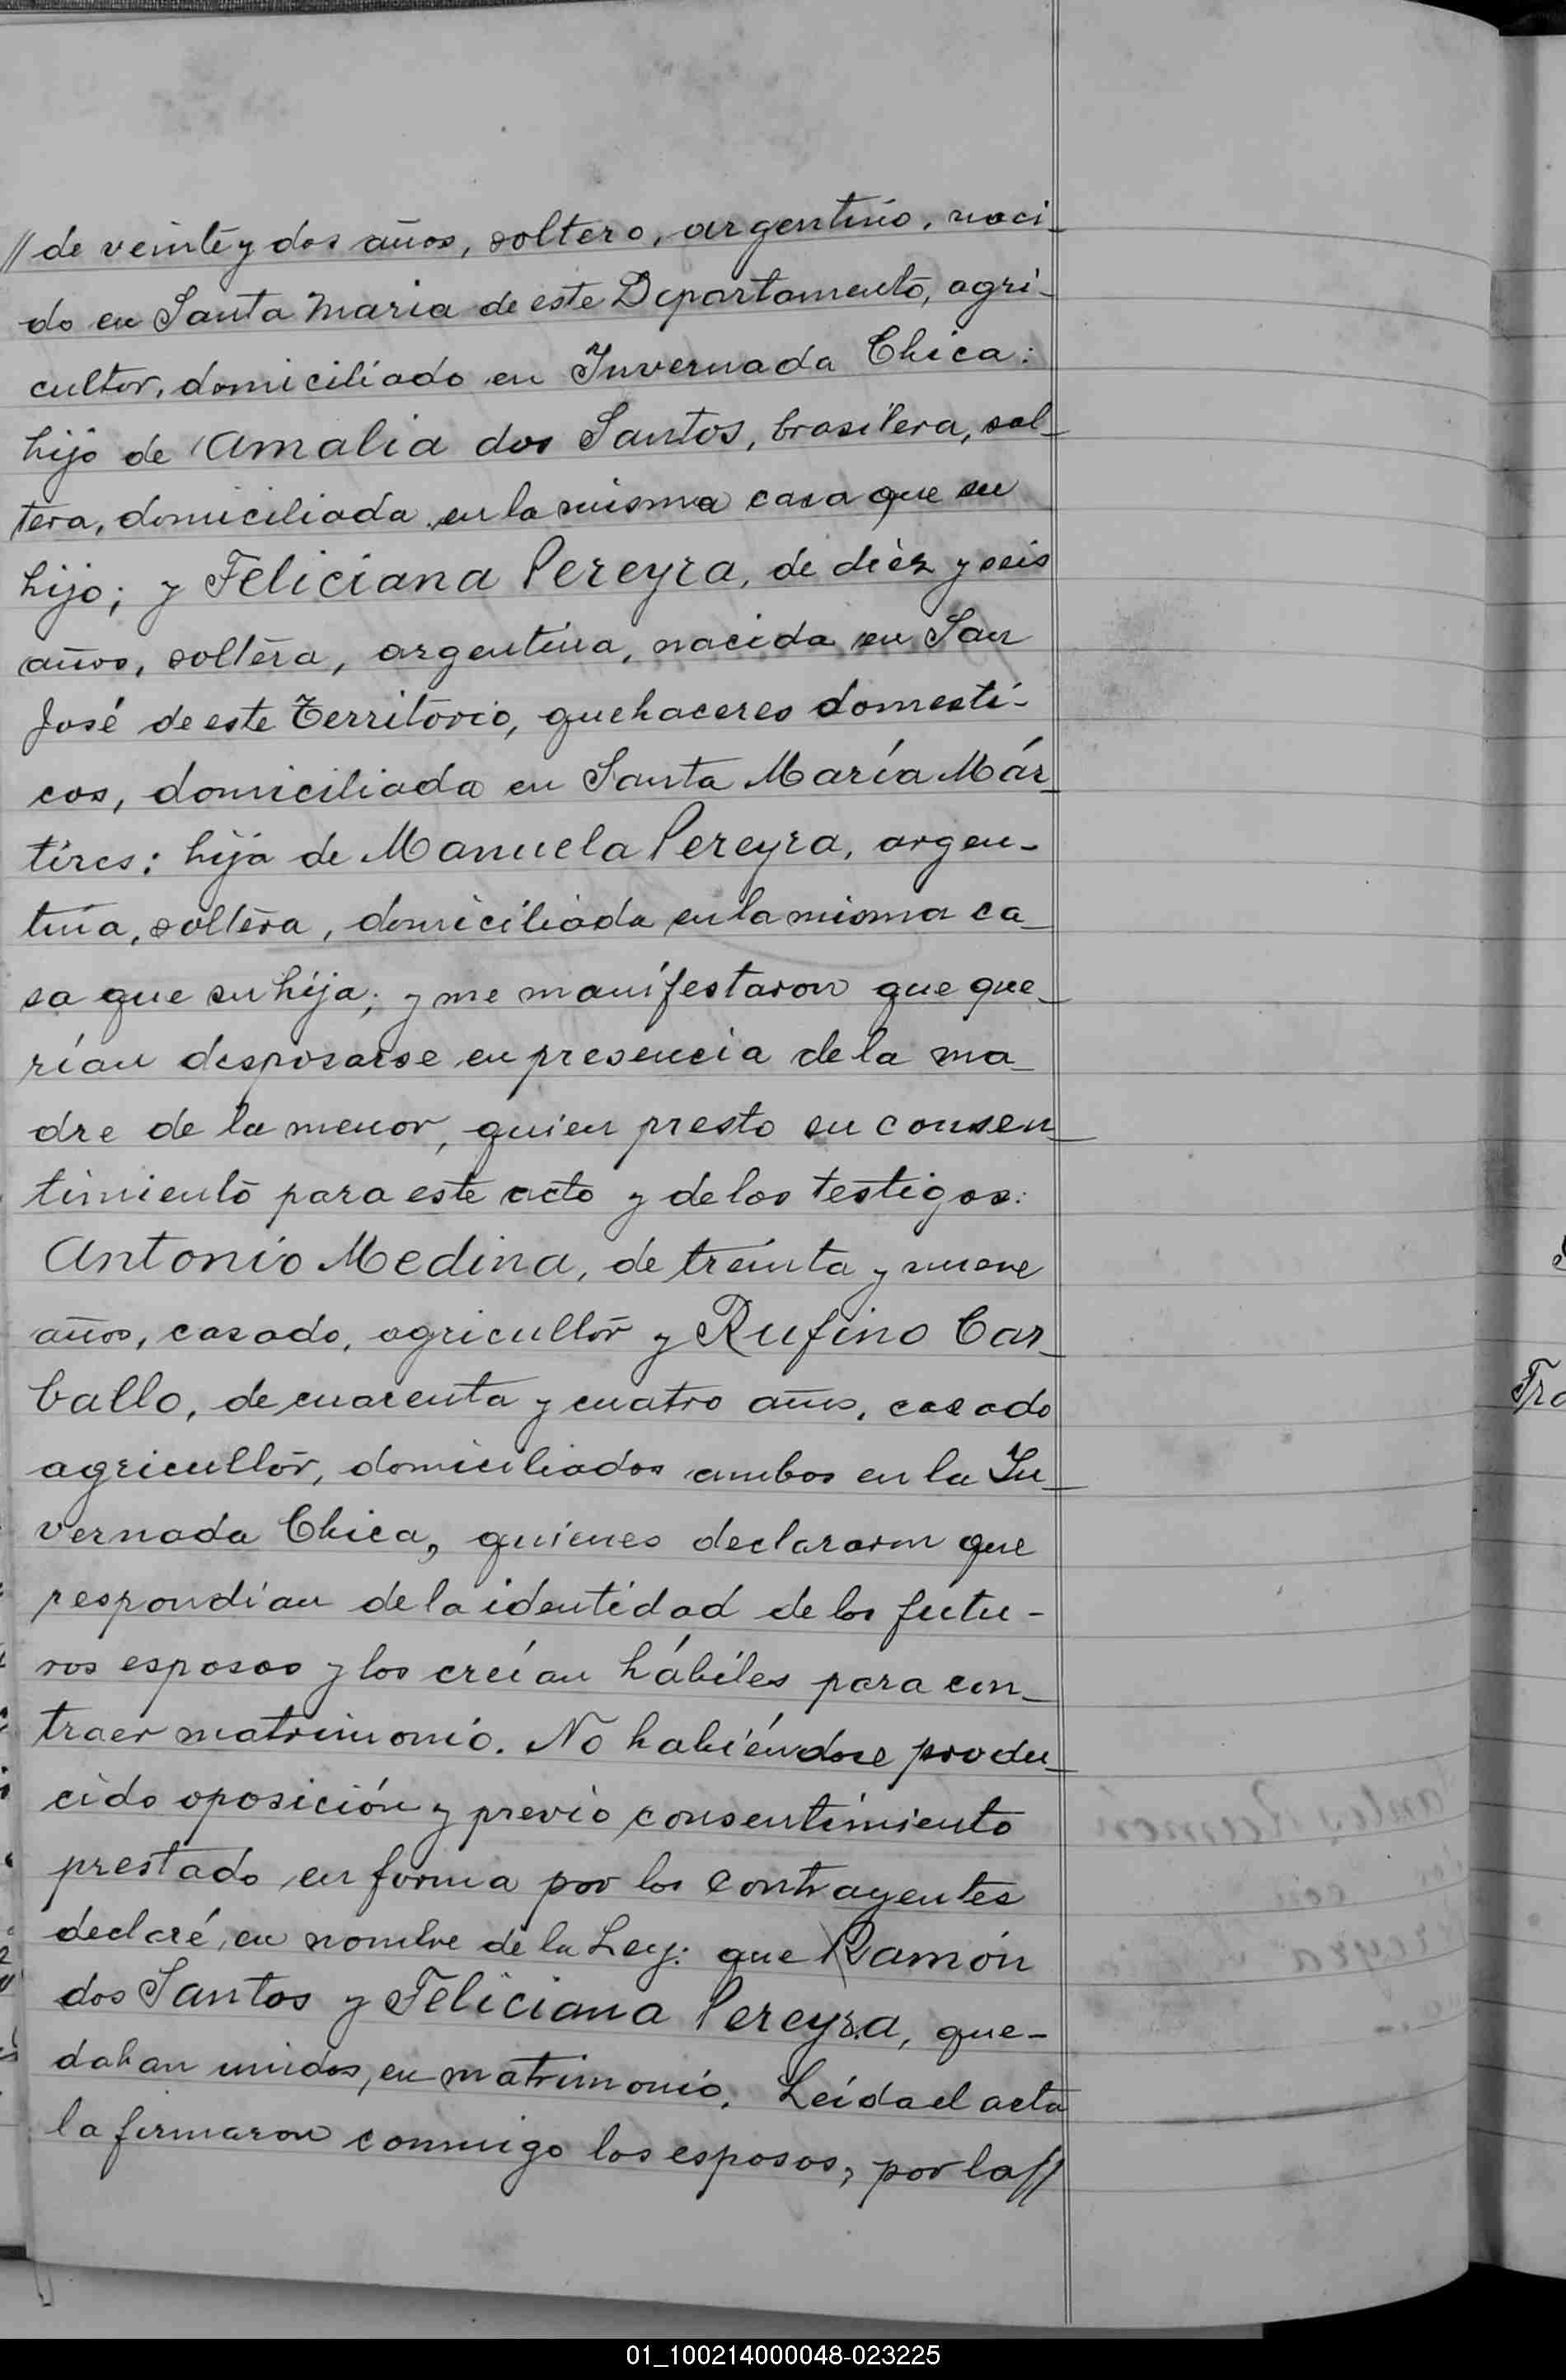 // de veinte y dos años, soltero, argentino, naci_
do en Santa Maria de este Departamento, agri-
cultor, domiciliado en Invernada Chica:
hijo de Amalia dos Santos, brasilera, sol_
tera, domiciliada en la misma casa que su
hijo; y Feliciana Pereyra, de diez y seis
años, soltera, argentina, nacida en San
José de este Territorio, quehaceres domesti-
cos, domiciliada en Santa María Már_
tires: hija de Manuela Pereyra, argen-
tina, soltera, domiciliada en la misma ca_
sa que su hija; y me manifestaron que que_
rían desposarse en presencia de la ma_
dre de la menor, quien presto su consen_
timiento para este acto y de los testigos:
Antonio Medina, de treinta y nueve
años, casado, agricultor y Rufino Car_
ballo, de cuarenta y cuatro años, casado
agricultor, domiciliados ambos en la In_
vernada Chica, quienes declararon que
respondían de la identidad de los futu-
ros esposos y los creían hábiles para con_
traer matrimonio. No habiéndose produ_
cido oposición y previo consentimiento
prestado en forma por los contrayentes
declaré, en nombre de la Ley: que Ramón
dos Santos y Feliciana Pereyra, que-
daban unidos, en matrimonio. Leída el acta
la firmaron conmigo los esposos, por la//
Tra
01_100214000048-023225